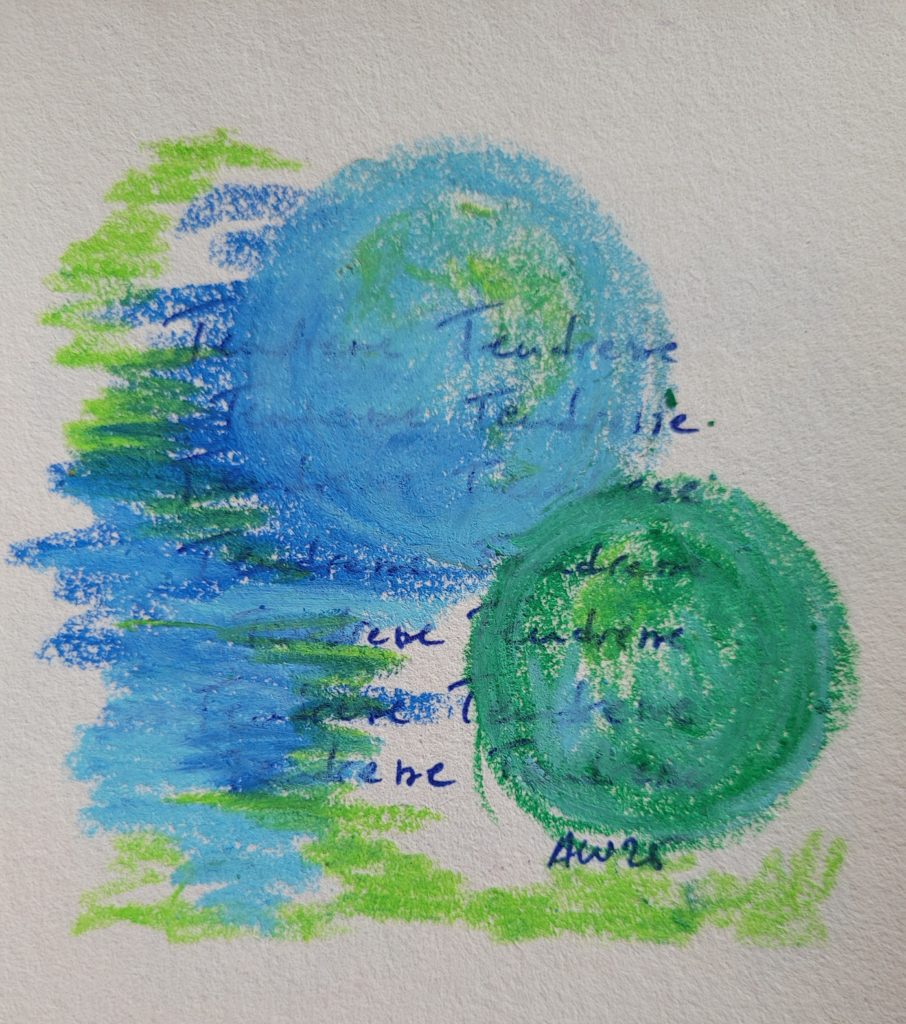 Tendresse Tendresse
Tendresse Tendresse
Tendresse Tendresse
Tendresse Tendresse
Tendresse Tendresse
Tendresse Tendresse
Tendresse Tendresse
AW25